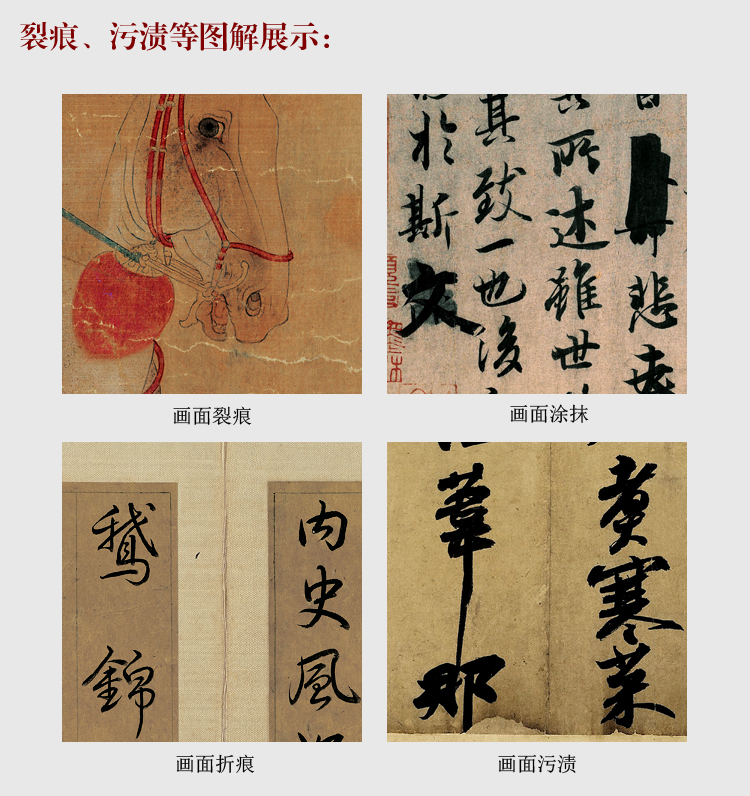 裂痕、污渍等图解展示：
悲
所述雖世
其致一也後
於斯文
画面裂痕
画面涂抹
内史風
鵝錦
煮寒菜
葦那
画面折痕
画面污渍